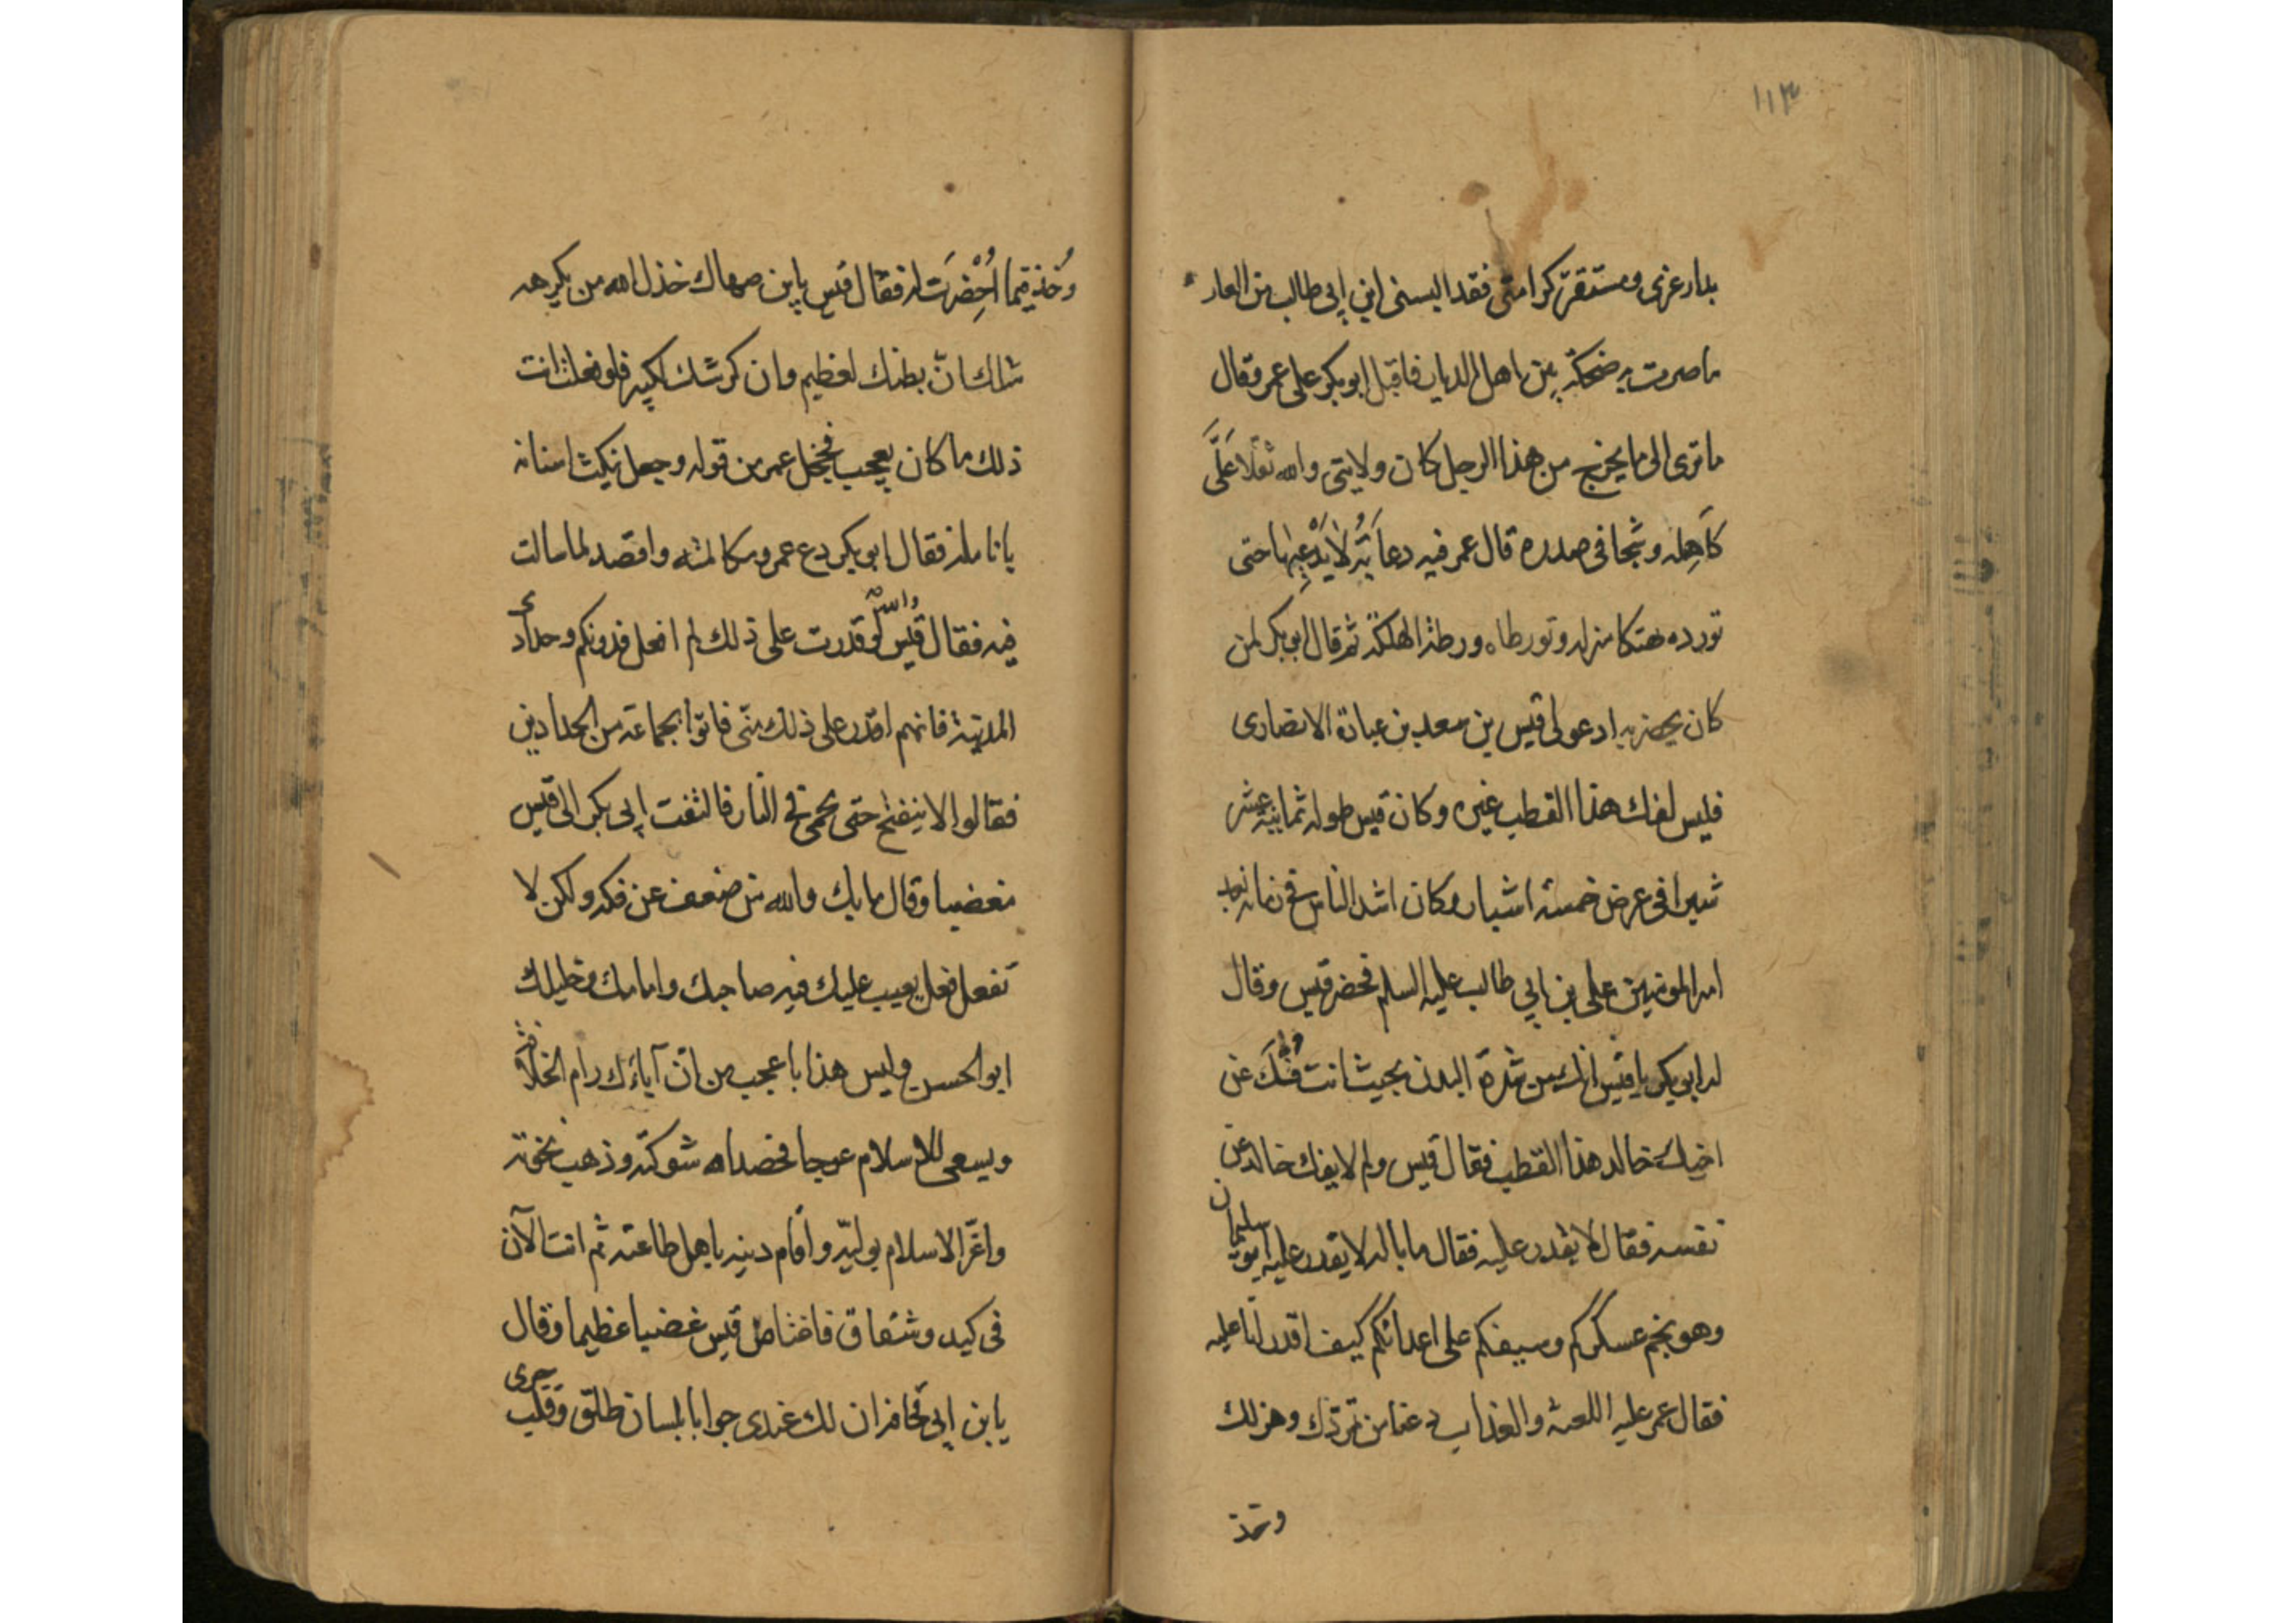 ١١٣
بدار عزى ومستقرّ كرامتى فقد البسنى ابن ابى طالب من العار
ما صرت به ضحكة بين اهل الديار فاقبل ابو بكر على عمر وقال
ما ترى الى ما يخرج من هذا الرجل كان ولايتى والله ثقلا عَلَى
كَاهِله وشجا فى صدره قال عمر فيه دعابَة لا يَدَعُها حتى
تورده هتكا منزله وتورطاه ورطة الهلكة ثم قال ابو بكر لمن
كان بحضرته ادعو لى قيس بن سعد بن عبادة الانصارى
فليس لفك هذا القطب غيره وكان قيس طوله ثمانية عشر
شبرا فى عرض خمسة اشبار وكان اشد الناس فى زمانه بعد
امير المومنين على بن ابي طالب عليه السلم فحضر قيس وقال
له ابى بكر يا قيس انك من شدة البدن بحيث انت ففُكّ عن
اخيك خالد هذا القطب فقال قيس ولم لا يفك خالد عن
نفسه فقال لا يقدر عليه فقال ما باله لا يقدر عليه ابو سليمان
وهو نجم عسكركم وسيفكم على اعدائكم كيف اقدر انا عليه
فقال عمر عليه اللعنة والعذاب دعنا من هزلك
وخذ
وُخذ فيما اُحْضِرَت له فقال قيس يابن صهاك خذل الله من يكرهه
مثلك انّ بطنك لعظيم وان كرشك لكبير فلو فعلت انت
ذلك ما كان بعجب فخجل عمر من قوله وجعل ينكث اسنانه
بانامله فقال ابو بكر دع عمر ومكالمته واقصد لما سالت
فيه فقال قيس والله لَو قدرت على ذلك لم افعل فدونكم وحدّادى
المدينة فانهم اقدر على ذلك منّى فاتوا بجماعة من الحدادين
فقالوا لا ينفتح حتى يحمى فى النار فالتفت ابى بكر الى قيس
مغضبا وقال ما بك والله من ضعف عن فكه ولكن لا
تفعل فعل يعيب عليك فيه صاحبك وامامك وخليلك
ابو الحسن وليس هذا باعجب من انّ آباءَك رام الخلافة
ويسعى للاسلام عوجا فحصد الله شوكته وذهب نخوته
واعّز الاسلام بوليّه واقام دينه باهل طاعته ثم انت الآن
فى كيد وشقاق فاغتاض قيس غضبا عظيما وقال
يابن ابى قحافة ان لك عندى جوابا بلسان طلق وَقلب جرى